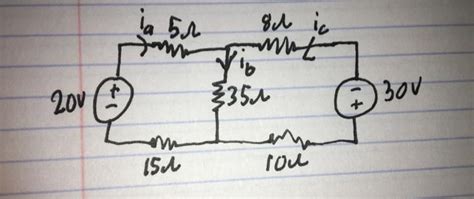 ia 5Ω 8Ω ic
ib
20V + - 35Ω - + 30V
15Ω 10Ω